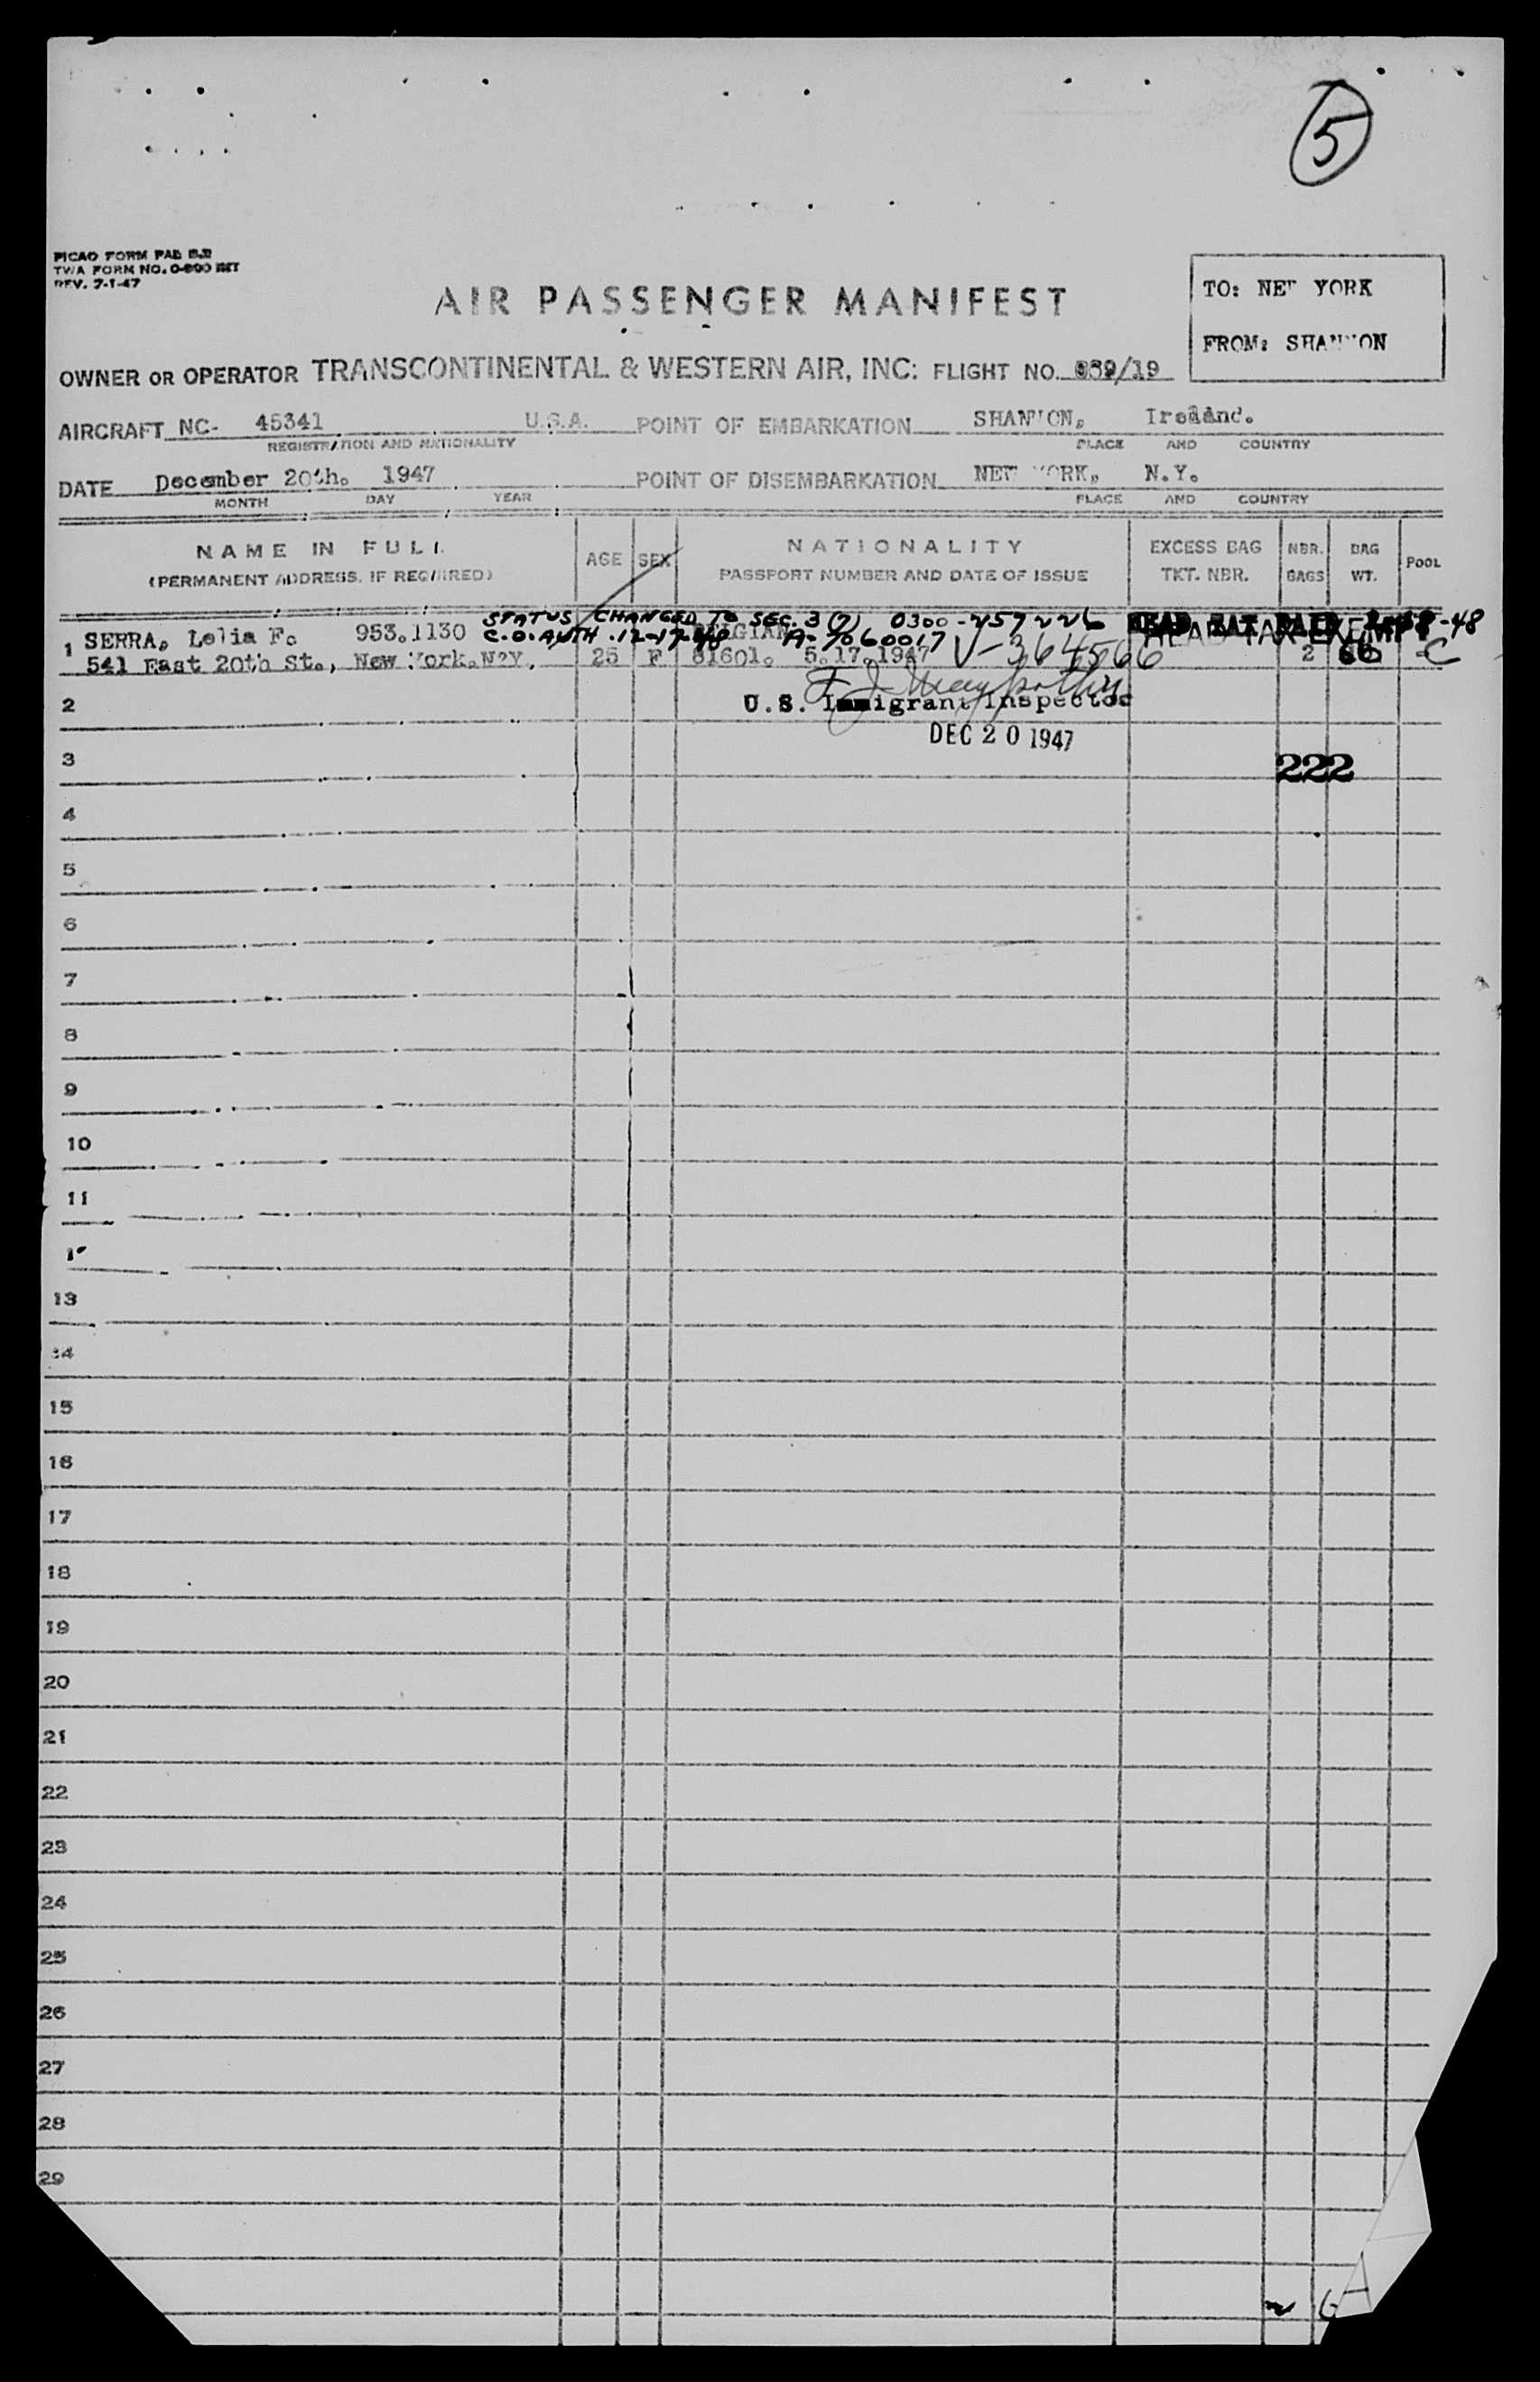 5
PICAO FORM PAD
TWA FORM NO.
REV. 7-1-47
TO: NEW YORK
FROM: SHANNON
AIR PASSENGER MANIFEST
OWNER OR OPERATOR TRANSCONTINENTAL & WESTERN AIR, INC: FLIGHT NO. 959/19
AIRCRAFT NC- 45341 U.S.A. POINT OF EMBARKATION SHANNON,
REGISTRATION AND NATIONALITY PLACE AND COUNTRY
DATE December 20th. 1947 POINT OF DISEMBARKATION NEW YORK, N.Y.
MONTH DAY YEAR PLACE AND COUNTRY
NAME IN FULL AGE SEX NATIONALITY EXCESS BAG NBR. BAG POOL
(PERMANENT ADDRESS, IF REQUIRED) PASSPORT NUMBER AND DATE OF ISSUE TKT. NBR. BAGS WT.
STATUS CHANGED TO SEC. 3 (7) 0300-257226
1 SERRA, Lelia F. 953.1130 C.O. AUTH. 12-17-48 BELGIAN A-7060017 HEAD TAX
541 East 20th St., New York.N.Y. 25 F 81601. 5.17.1947 V-3645866 2 C
2 U.S. Immigrant Inspector
DEC 20 1947
3 222
4
5
6
7
8
9
10
11
13
14
15
16
17
18
19
20
21
22
23
24
25
26
27
28
29